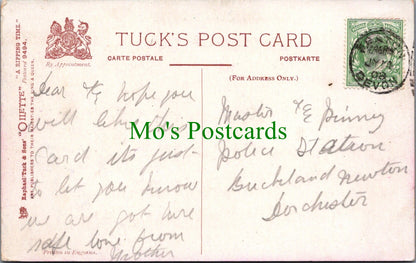 TUCK'S POST CARD
CARTE POSTALE
POSTKARTE
By Appointment.
(FOR ADDRESS ONLY.)
Raphael Tuck & Sons' "OILETTE"
"A RIPPING TIME."
Postcard 9494.
ART PUBLISHERS TO THEIR MAJESTIES THE KING & QUEEN.
PRINTED IN ENGLAND.
Dear hope you
will like this
Card its just
to let you know
we are got here
safe love from
Mother
Master Pinney
Police Station
Buckland Newton
Dorchester
Mo's Postcards